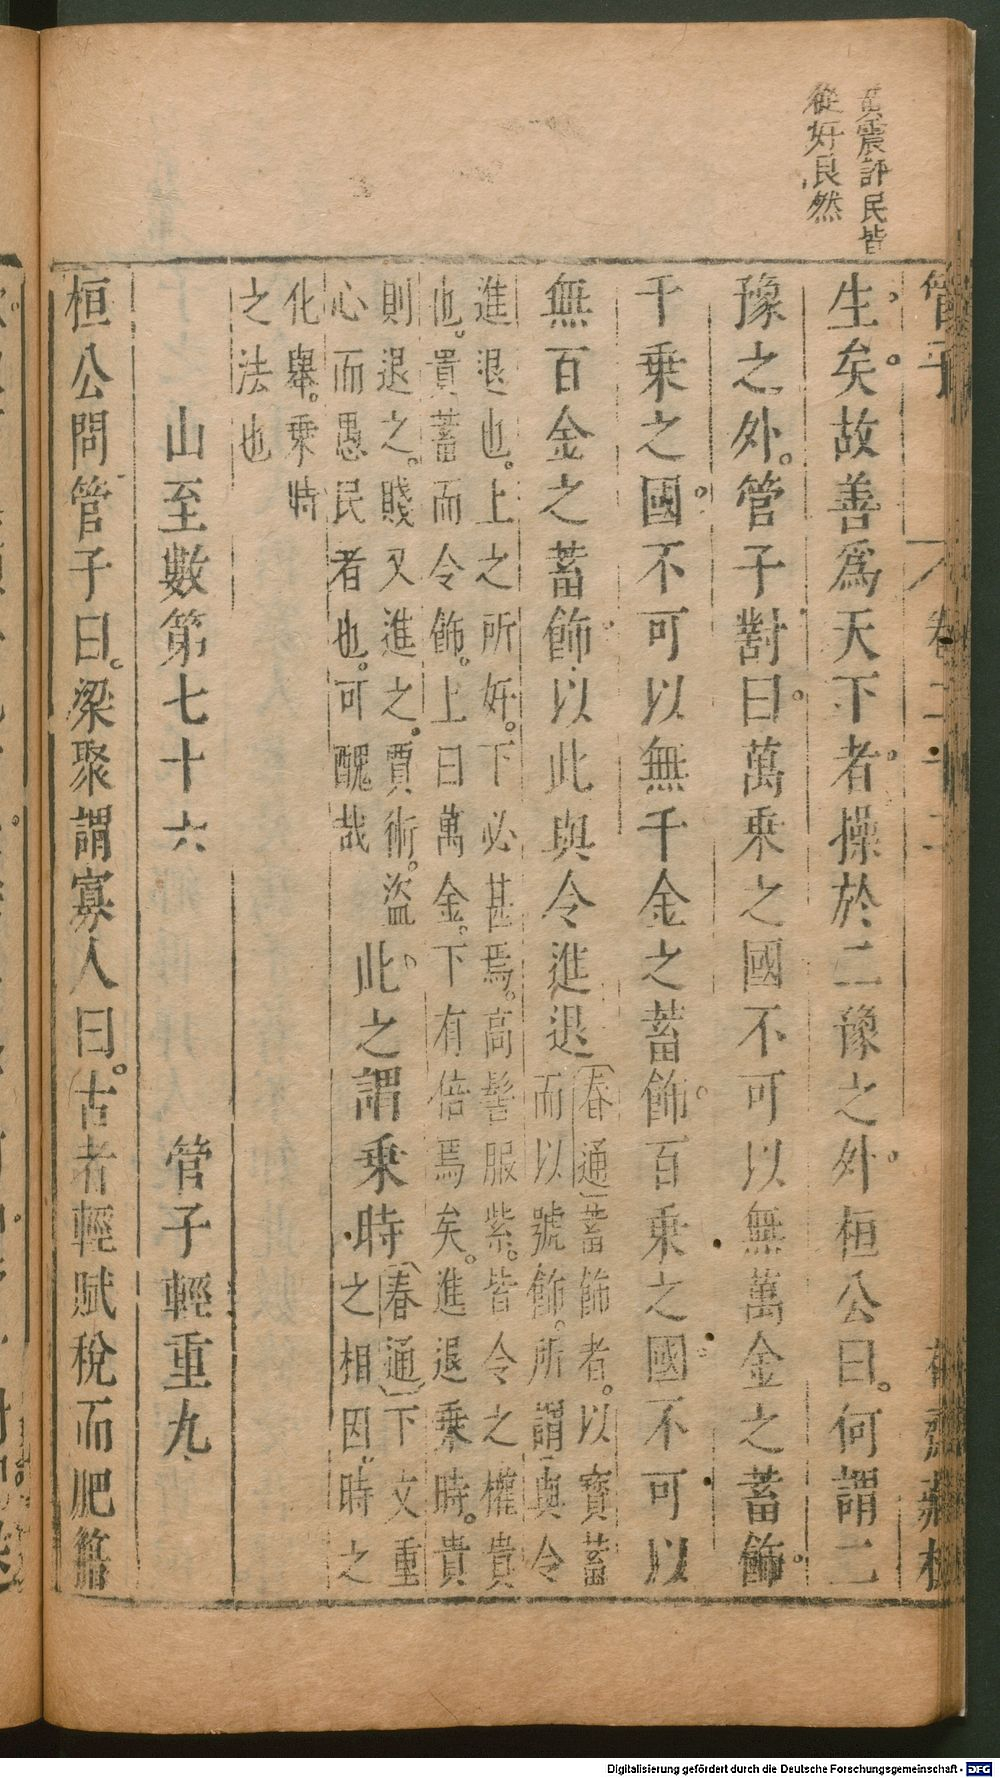 黃震評民皆
從好良然
管子 卷二十二 花齋藏板
生矣。故善爲天下者。操於二豫之外。桓公曰。何謂二
豫之外。管子對曰。萬乘之國不可以無萬金之蓄飾。
千乘之國。不可以無千金之蓄飾。百乘之國。不可以
無百金之蓄飾。以此與令進退(春通)蓄飾者。以寶蓄
而以號飾。所謂與令
進退也。上之所好。下必甚焉。高髻服紫。皆令之權貴
也。貴蓄而令飾。上曰萬金。下有倍焉矣。進退乘時。貴
則退之。賤又進之。賈術。盜
心而愚民者也。可醜哉
此。之謂乘時(春通)下文重
之相因。時之
化舉。乘時
之法也
山至數第七十六 管子輕重九
桓公問管子曰。梁聚謂寡人曰。古者輕賦稅而肥籍
Digitalisierung gefördert durch die Deutsche Forschungsgemeinschaft - DFG